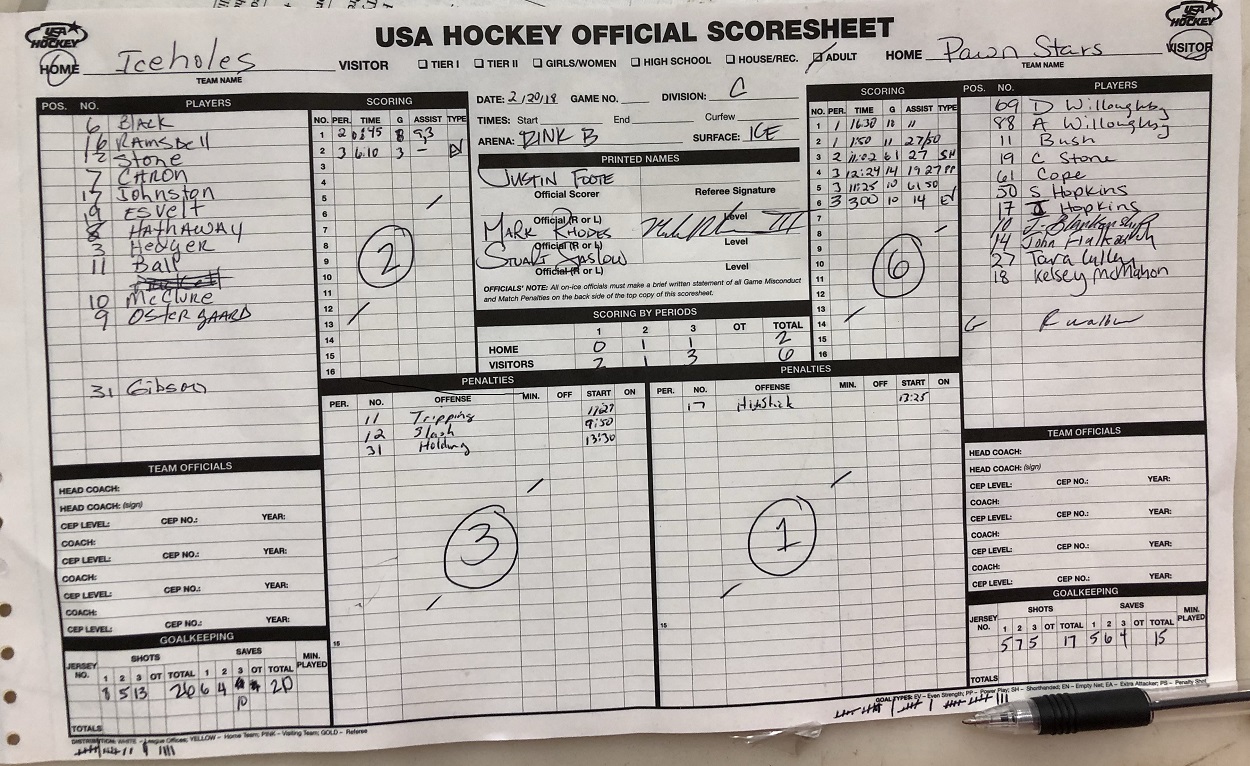 USA HOCKEY OFFICIAL SCORESHEET
USA HOCKEY
HOME Iceholes VISITOR
TEAM NAME
TIER I TIER II GIRLS/WOMEN HIGH SCHOOL HOUSE/REC. ADULT
HOME Pawn Stars VISITOR
TEAM NAME
USA HOCKEY
POS. NO. PLAYERS
6 Black
Ramsdell
12 Stone
7 CARON
17 Johnston
19 ESVELT
8 HATHAWAY
3 Hedger
11 Ball
10 McClure
9 OSTERGAARD
31 Gibson
SCORING
NO. PER. TIME G ASSIST TYPE
1 2 8 9,3
2 3 6:10 3 -
3
4
5
6
7
8
9
10
11
12
13
14
15
16
2
DATE: 2/20/18 GAME NO. DIVISION: C
TIMES: Start End Curfew
ARENA: RINK B SURFACE: ICE
PRINTED NAMES
JUSTIN FOOTE
Official Scorer Referee Signature
Official (R or L) Level
MARK RHODES
Official (R or L) Level
STUART SASLOW
Official (R or L) Level
OFFICIALS' NOTE: All on-ice officials must make a brief written statement of all Game Misconduct
and Match Penalties on the back side of the top copy of this scoresheet.
SCORING BY PERIODS
1 2 3 OT TOTAL
HOME 0 1 1 2
VISITORS 2 1 3 6
SCORING
NO. PER. TIME G ASSIST TYPE
1 1 16:30 10 11
2 1 1:50 11 27/50
3 2 11:02 61 27 SH
4 3 12:24 14 19 27 PP
5 3 11:25 10 61 50
6 3 300 10 14 EV
7
8
9
10
11
12
13
14
15
16
6
POS. NO. PLAYERS
69 D Willoughby
88 A Willoughby
11 Bush
19 C Stone
61 Cope
50 S Hopkins
17 Hopkins
10 J. Blankenship
14 John
27 Tara
18 Kelsey McMahon
G
PENALTIES
PER. NO. OFFENSE MIN. OFF START ON
11 Tripping 11:27
12 Slash 9:50
31 Holding 13:30
15
3
PENALTIES
PER. NO. OFFENSE MIN. OFF START ON
17 Hi Stick 13:25
15
1
TEAM OFFICIALS
HEAD COACH:
HEAD COACH: (sign)
CEP LEVEL: CEP NO.: YEAR:
COACH:
CEP LEVEL: CEP NO.: YEAR:
COACH:
CEP LEVEL: CEP NO.: YEAR:
COACH:
CEP LEVEL: CEP NO.: YEAR:
GOALKEEPING
JERSEY NO. SHOTS SAVES MIN. PLAYED
1 2 3 OT TOTAL 1 2 3 OT TOTAL
8 5 13 26 6 4 20
10
TOTALS
TEAM OFFICIALS
HEAD COACH:
HEAD COACH: (sign)
CEP LEVEL: CEP NO.: YEAR:
COACH:
CEP LEVEL: CEP NO.: YEAR:
COACH:
CEP LEVEL: CEP NO.: YEAR:
COACH:
CEP LEVEL: CEP NO.: YEAR:
GOALKEEPING
JERSEY NO. SHOTS SAVES MIN. PLAYED
1 2 3 OT TOTAL 1 2 3 OT TOTAL
5 7 5 17 5 6 4 15
TOTALS
DISTRIBUTION: WHITE – League Offices; YELLOW – Home Team; PINK – Visiting Team; GOLD – Referee
GOAL TYPES: EV – Even Strength; PP – Power Play; SH – Shorthanded; EN – Empty Net; EA – Extra Attacker; PS – Penalty Shot